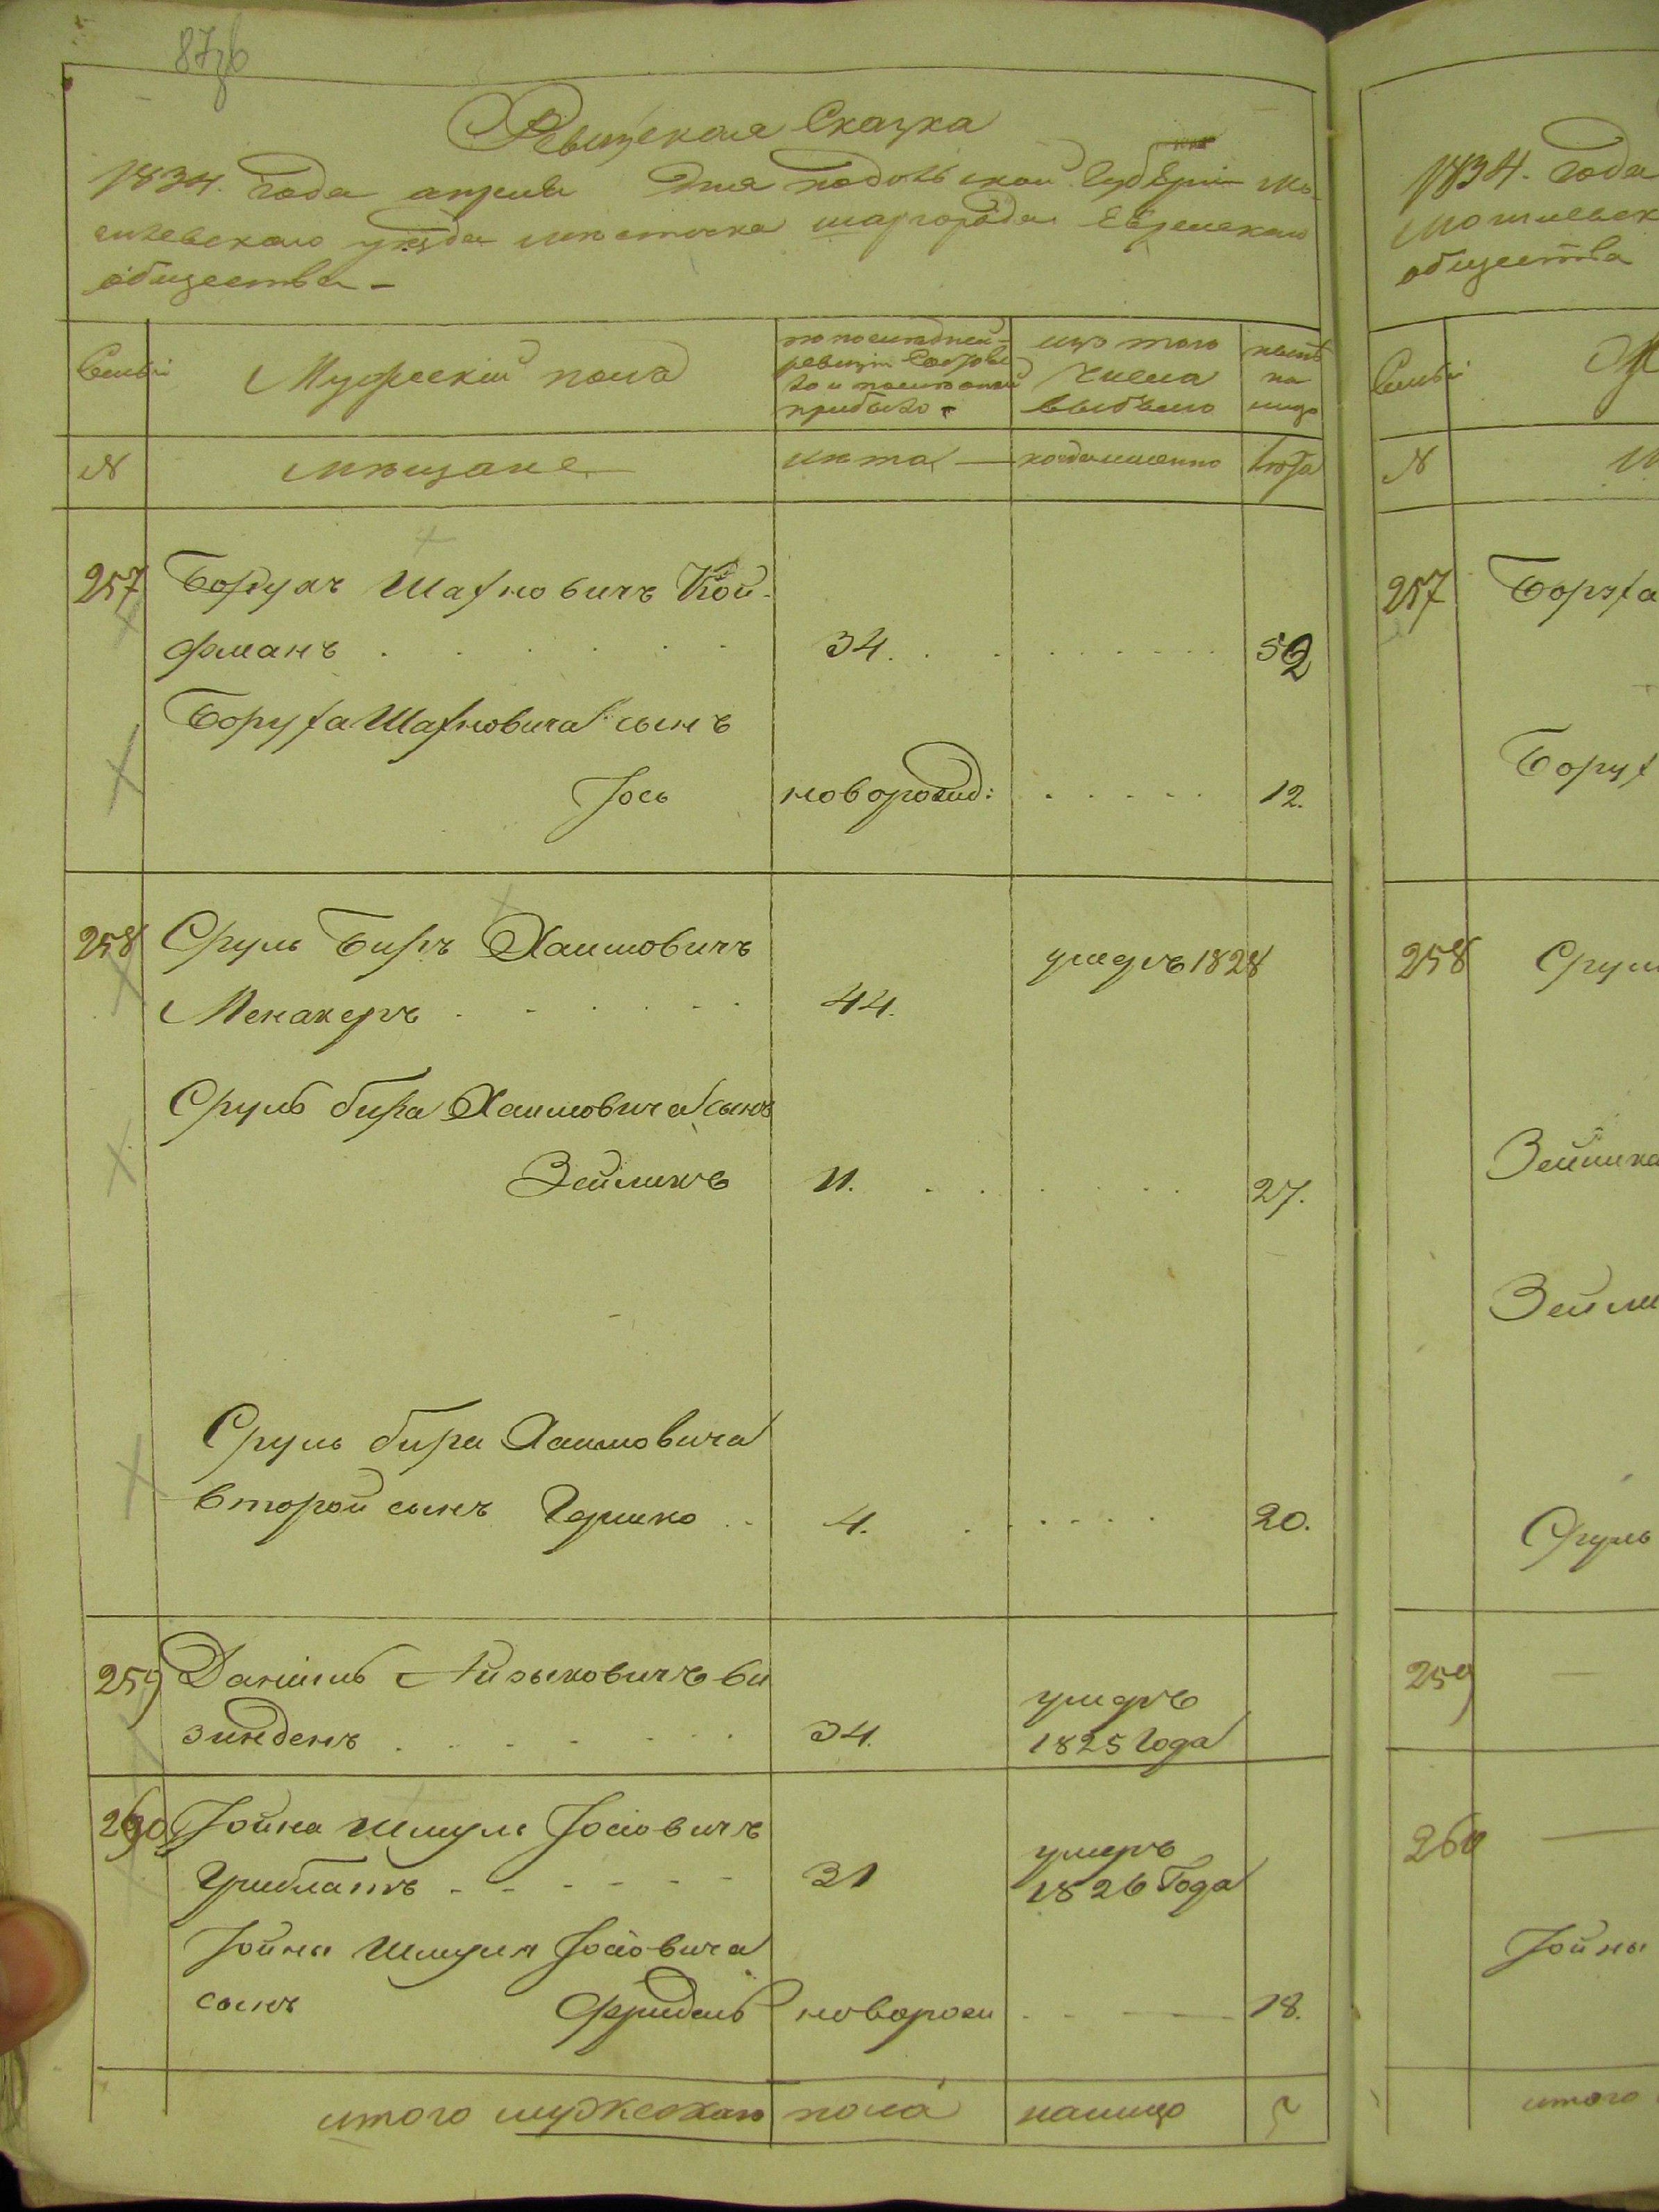 87зв
Ревизская Сказка
1834. года апреля дня подольской Губернiи мо
гилевского уезда местечка шаргорода Еврейского
общества -
Семьи
Мужескiй полъ
по последней
ревизiи состоя
ло и после оной
прибыло
изъ того
числа
выбыло
ныне
на
лицо
N
мещане
лета
когда именно
лета
257 Борухъ Шахновичъ Кой-
фманъ . . . . . . 34. . . . . . . . 52
Боруха Шахновича сынъ
Iось новорожд: . . . . . 12.
258 Сруль Биръ Хаимовичъ умеръ 1828
Менакеръ . . . . . . 44.
Сруль бира Хаимовича сынъ
Зейликъ 11. . . . . . 27.
Сруль бира Хаимовича
второй сынъ Гершко . . 4. . . . . . 20.
259 Данiиль Айзыковичъ би умеръ
зинденъ . . . . . . 34. 1825 Года
260 Iойна Шмуль Iосiовичъ умеръ
Гринблатъ . - - - - - 31 1826 Года
Iойны Шмуля Iосiовича
сынъ Фридель новорож . . — 18.
итого мужескаго пола налицо 5
1834. Года
Могилевск
общества
Семьи
N
257 Боруха
Борух
258 Срул
Зейлика
Зейли
Сруль
259 —
260 —
Iойны
итого